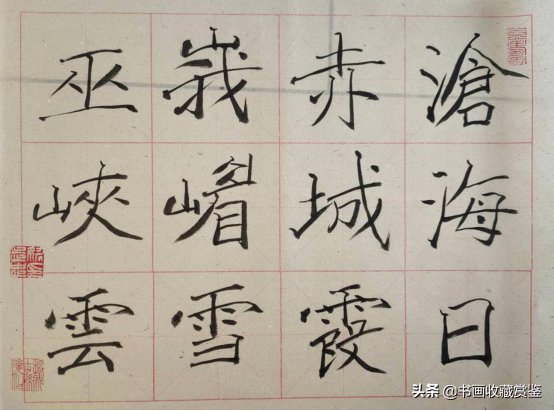 滄海日
赤城霞
峩嵋雪
巫峽雲
头条 @书画收藏赏鉴